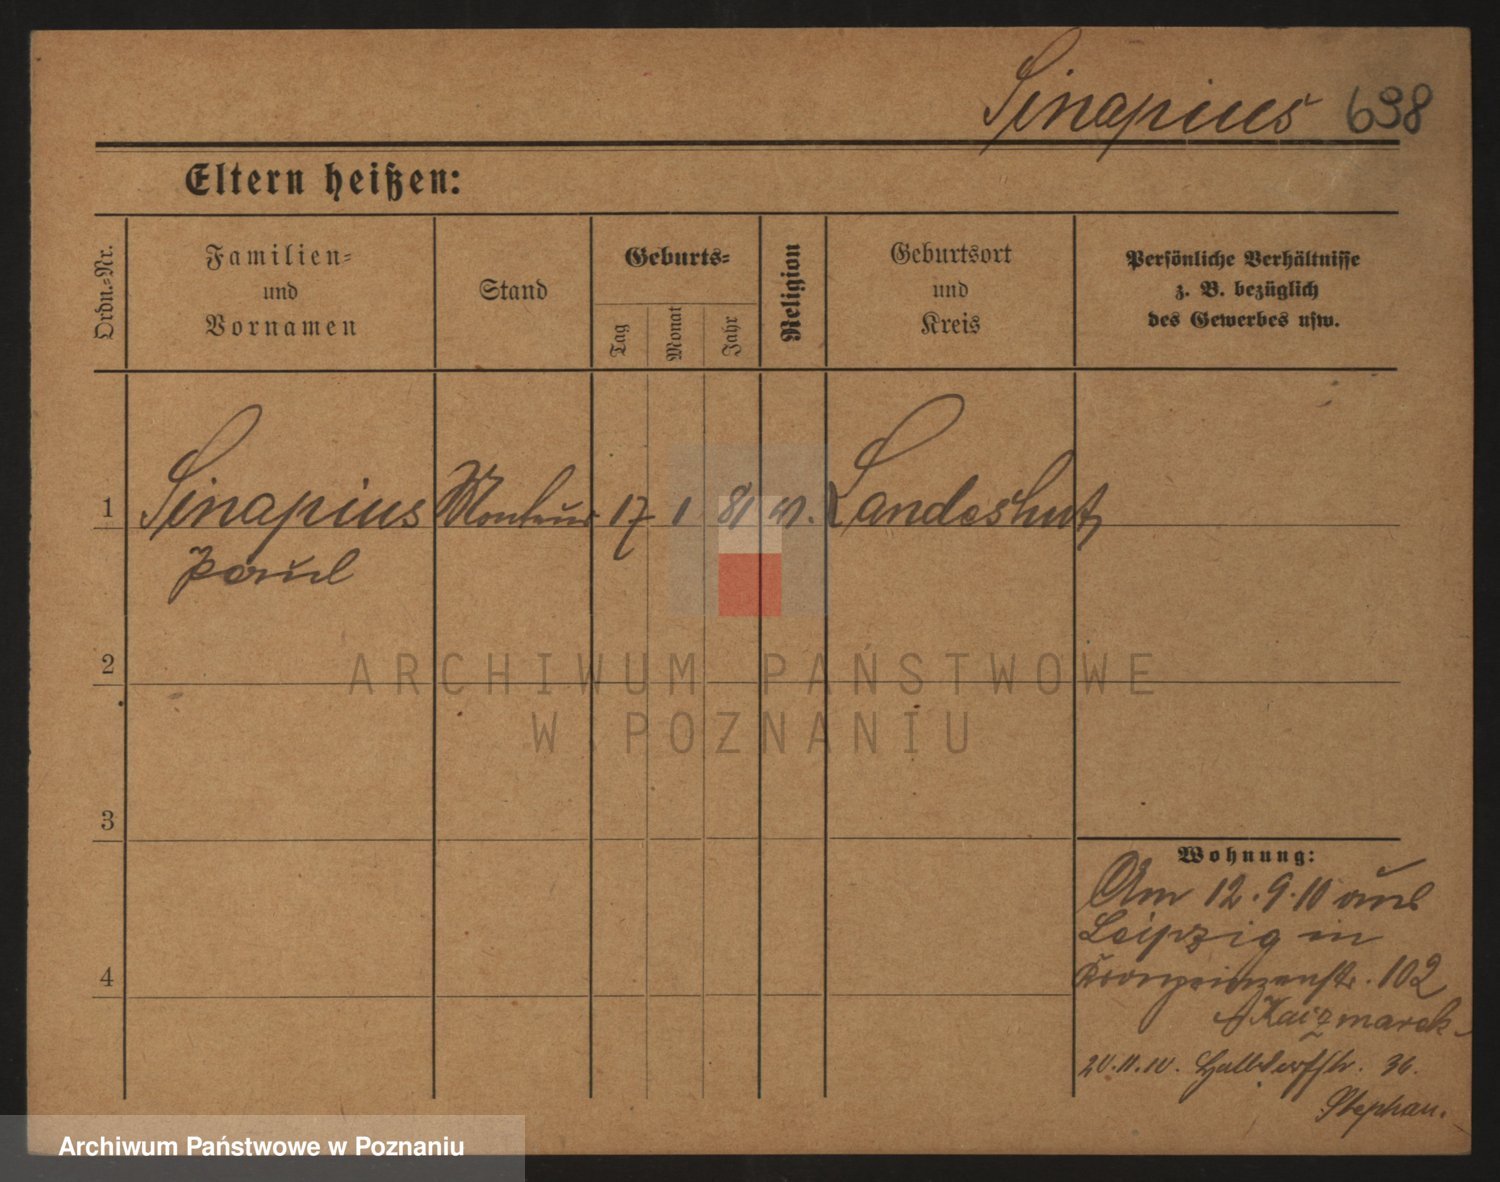 Sinapius 698
Eltern heißen:
Ordn.-Nr.
Familien-
und
Vornamen
Stand
Geburts-
Tag
Monat
Jahr
Religion
Geburtsort
und
Kreis
Persönliche Verhältnisse
z. B. bezüglich
des Gewerbes usw.
1 Sinapius Monteur 17 1 81 Landeshut
Paul
2
3
4
Wohnung:
Am 12.9.10 aus
Leipzig in
Kronprinzenstr. 102
Kaczmarek
20.11.10. Halbdorfstr. 36.
Stephan.
ARCHIWUM PAŃSTWOWE
W POZNANIU
Archiwum Państwowe w Poznaniu